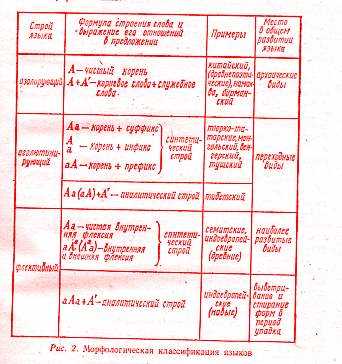 Строй языка
Формула строения слова и выражение его отношений в предложении
Примеры
Место в общем развитии языка
изолирующий
А — чистый корень
А + А' — корневое слово + служебное слово
китайский, (древнепоэтический), намаква, бирманский
архаические виды
агглютинирующий
Аа — корень + суффикс
А
а — корень + инфикс
аА — корень + префикс
синтетический строй
тюрко-татарские, монгольский, венгерский, тушский
переходные виды
Аа (аА) + А' — аналитический строй
тибетский
флективный
Аа — чистая внутренняя флексия
— внутренняя и внешняя флексия
синтетический строй
семитские, индоевропейские (древние)
наиболее развитые виды
аАа + А' — аналитический строй
индоевропейские (новые)
выветривание и стирание форм в период упадка
Рис. 2. Морфологическая классификация языков